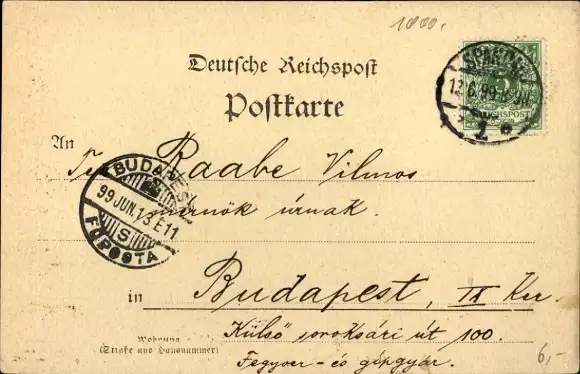 1000.
Deutsche Reichspost
Postkarte
SPANDAU
12.6.99
1 e
5
REICHSPOST
An
Raabe Vilmos
BUDAPEST
99 JUN.13 E11
S
FÖPOSTA
mérnök úrnak.
in Budapest, IX Ker.
Külső soroksári út 100.
Wohnung
(Straße und Hausnummer)
Fegyver- és gépgyár.
6,-